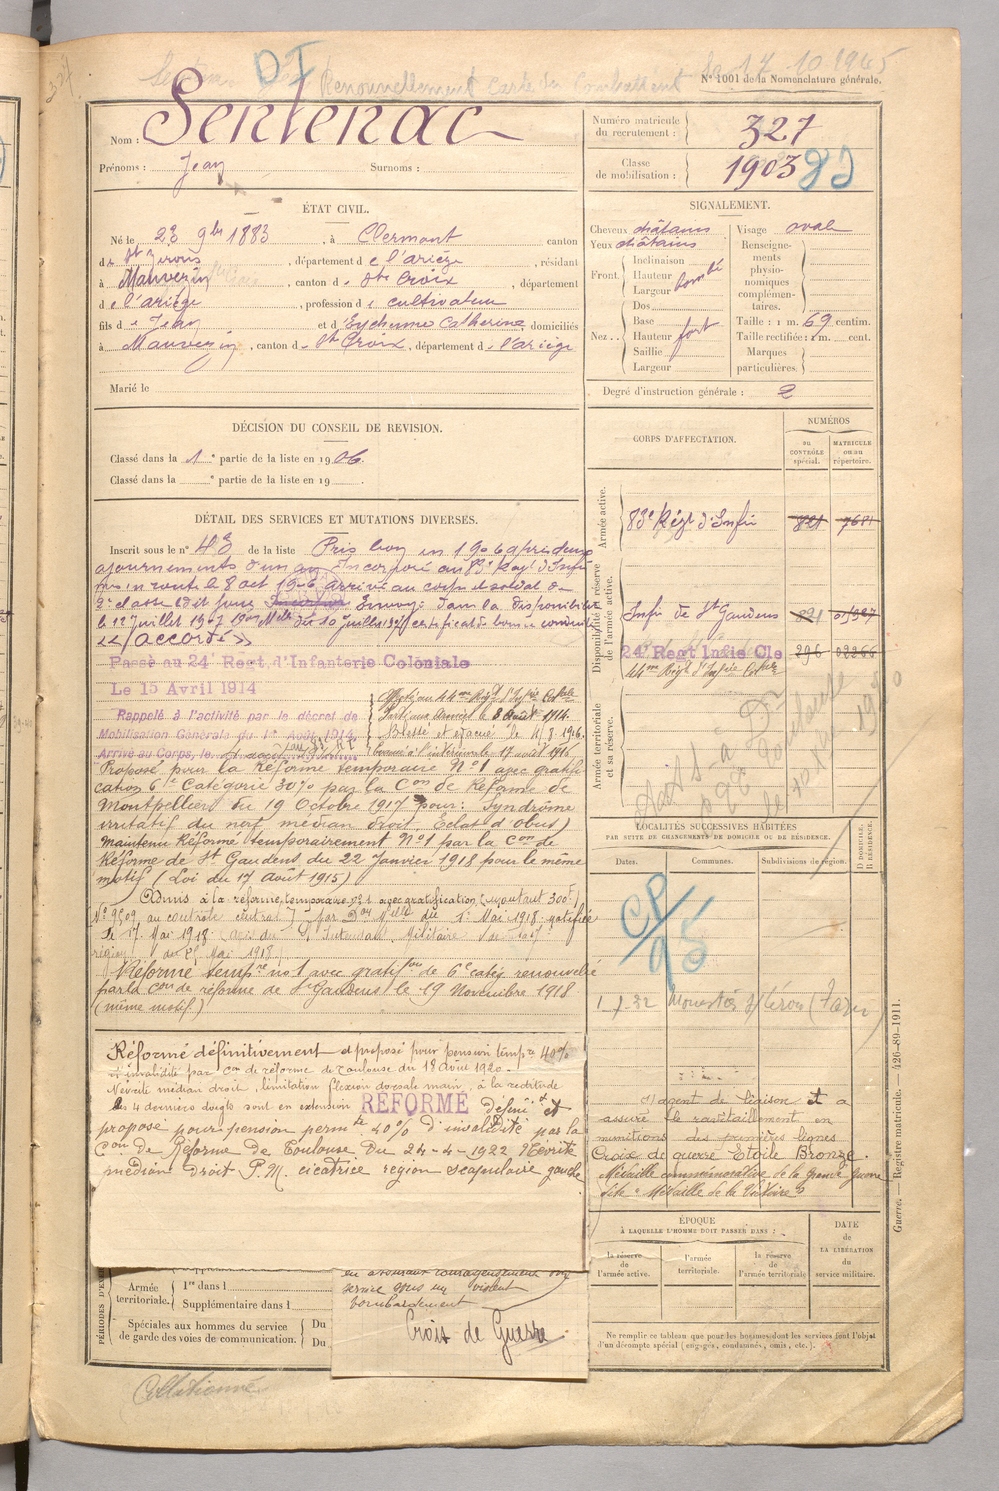 327
DI
Renouvellement Carte du Combattant
17 10 1945
N° 1001 de la Nomenclature générale.
Nom : Sentenac
Prénoms : Jean Surnoms :
Numéro matricule du recrutement : 327
Classe de mobilisation : 1903
ÉTAT CIVIL.
Né le 23 9bre 1883, à Clermont canton
de St Girons, département de l'ariège, résidant
à Mauvezin, canton de Ste Croix, département
de l'ariège, profession de cultivateur
fils de Jean et d'Eychenne Catherine, domiciliés
à Mauvezin, canton de Ste Croix, département de l'ariège
Marié le
SIGNALEMENT.
Cheveux châtains
Yeux châtains
Front. Inclinaison
Hauteur
Largeur
bombé
Nez.. Dos
Base
Hauteur fort
Saillie
Largeur
Visage ovale
Renseignements physionomiques complémentaires.
Taille : 1 m. 69 centim.
Taille rectifiée : 1 m. cent.
Marques particulières.
Degré d'instruction générale : 2
DÉCISION DU CONSEIL DE REVISION.
Classé dans la 1e partie de la liste en 1906.
Classé dans la e partie de la liste en 190
DÉTAIL DES SERVICES ET MUTATIONS DIVERSES.
Inscrit sous le n° 43 de la liste Pris bon en 1906 après deux
ajournements d'un an Incorporé au 83e Régt d'Infie
mis en route le 8 oct 1906 arrivé au corps et soldat de
2e classe le dit jour. Envoyé dans la disponibilité
le 12 juillet 1907 certificat de bonne conduite
« accordé »
Passé au 24e Regt d'Infanterie Coloniale
Le 15 Avril 1914
Rappelé à l'activité par le décret de
Mobilisation Générale du 1er Août 1914.
Arrivé au Corps, le
Affecté au 44me Régt d'Infie Colale
Parti aux armées le 8 Août 1914.
Blessé et évacué le 11/8 1916.
17 août 1916
Proposé pour la Réforme temporaire N°1 avec gratifi
cation 6e Catégorie 30% par la Con de Réforme de
Montpellier du 19 Octobre 1917 pour : Syndrôme
irritatif du nerf médian droit Eclat d'obus)
Maintenu Réformé temporairement N°1 par la Con de
Réforme de St Gaudens du 22 Janvier 1918 pour le même
motif (Loi du 17 Août 1915)
Admis à la réforme temporaire n° 1 avec gratification (montant 300f)
[N° 9509 au contrôle central] par Don Mlle du 1er Mai 1918 notifiée
le 17 Mai 1918
région du 25 Mai 1918)
Réforme tempre n° 1 avec gratifon de 6e catég renouvelée
par la Con de réforme de St Gaudens le 19 Novembre 1918
(même motif)
Réformé définitivement et proposé pour pension tempre 40%
d'invalidité par Con de réforme de Toulouse du 18 Août 1920.
Névrite médian droit, limitation flexion dorsale main, à la rectitude
les 4 derniers doigts sont en extension REFORMÉ définit et
proposé pour pension permte 40% d'invalidité par la
Con De Réforme De Toulouse Du 24-4-1922 Névrite
médian droit P.M. cicatrice région scapulaire gauche
CORPS D'AFFECTATION.
NUMÉROS
DU CONTRÔLE spécial.
MATRICULE ou au répertoire.
Armée active.
83e Régt d'Infie 821 7681
Disponibilité et réserve de l'armée active.
Infie de St Gaudens 821 01397
24e Regt Infie Cle 296 02266
44me Régt d'Infie Colale
Armée territoriale et sa réserve.
LOCALITÉS SUCCESSIVES HABITÉES
PAR SUITE DE CHANGEMENTS DE DOMICILE OU DE RÉSIDENCE.
Dates. Communes. Subdivisions de région. D DOMICILE. R RÉSIDENCE.
CP/95
1-7-32 Monestiès s/ Cérou (Tarn)
agent de liaison et a
assuré le ravitaillement en
munitions des premières lignes
Croix de guerre Etoile Bronze.
Médaille commémorative de la Grande Guerre
dite « Médaille de la Victoire »
ÉPOQUE
À LAQUELLE L'HOMME DOIT PASSER DANS :
la réserve de l'armée active.
l'armée territoriale.
la réserve de l'armée territoriale
DATE de LA LIBÉRATION du service militaire.
Ne remplir ce tableau que pour les hommes dont les services font l'objet
d'un décompte spécial (engagés, condamnés, omis, etc.).
PÉRIODES D'EX
Armée territoriale. 1re dans l
Supplémentaire dans l
Spéciales aux hommes du service
de garde des voies de communication. Du
Du
en assurant courageusement son
service sous un violent
bombardement
Croix de Guerre
Guerre. — Registre matricule. — 426-89-1911.
Collationné